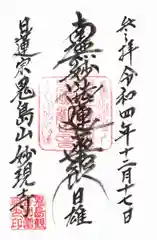 参拝 令和四年十二月十七日
南無妙法蓮華経 日雄
日蓮宗 鬼島山 妙現寺